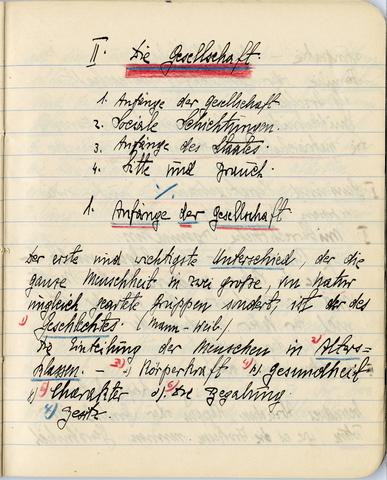 II. Die Gesellschaft.
1. Anfänge der Gesellschaft
2. Sociale Schichtungen.
3. Anfänge des Staates.
4. Sitte und Brauch.
1. Anfänge der Gesellschaft
Der erste und wichtigste Unterschied, der die
ganze Menschheit in zwei große, von Natur
ungleich geartete Gruppen sondert, ist der des
1) Geschlechtes. (Mann - Weib.)
Die Einteilung der Menschen in 2) Alters-
klassen. - Körperkraft b) Gesundheit
c) Charakter d) Die Begabung.
4) Besitz.